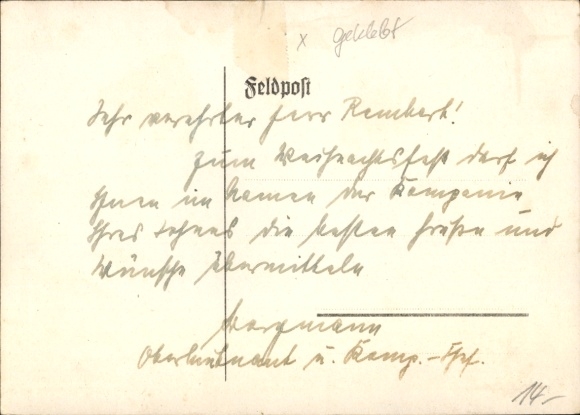 x geklebt
Feldpost
Sehr verehrter Herr Rembert!
Zum Weihnachtsfest darf ich
Ihnen im Namen der Kompanie
Ihres Sohnes die besten Grüße und
Wünsche übermitteln
Bergmann
Oberleutnant u. Komp.-Chef.
14.-